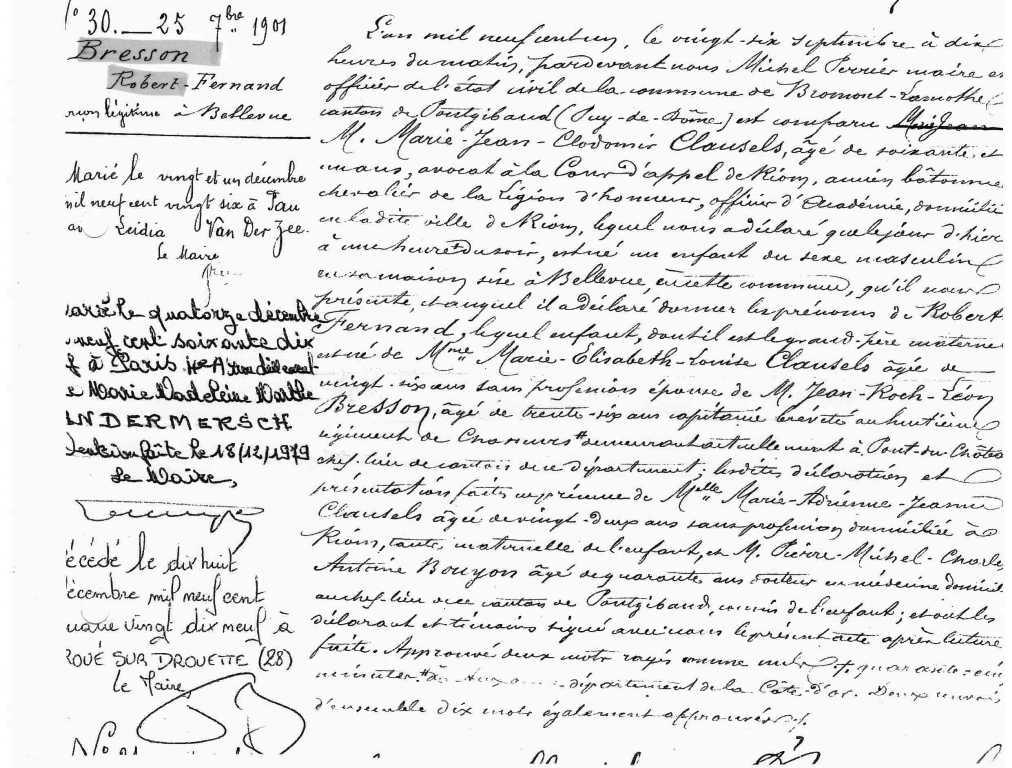 No 30. — 25 7bre 1901
Bresson
Robert-Fernand
légitime à Bellevue
Marié le vingt et un décembre
mil neuf cent vingt six à Pau
Leidia Van Der Zee.
Le Maire
le quatorze décembre
neuf cent soixante dix
à Paris
Marie Madeleine Marthe
ANDERMERSCH
faite le 18/12/1979
Le Maire,
écédé le dix huit
écembre mil neuf cent
vingt dix neuf à
SUR DROUETTE (28)
le Maire
L'an mil neuf cent un, le vingt-six septembre à dix
heures du matin, par devant nous Michel Perrier maire et
officier de l'état civil de la commune de Bromont-Lamothe
canton de Pontgibaud (Puy-de-Dôme) est comparu
M. Marie-Jean-Clodomir Clausels, âgé de soixante et
un ans, avocat à la Cour d'appel de Riom, ancien bâtonnie
chevalier de la Légion d'honneur, officier d'Académie, domicilié
en ladite ville de Riom, lequel nous a déclaré que le jour d'hier
à une heure du soir, est né un enfant du sexe masculin
en sa maison sise à Bellevue, en cette commune, qu'il nous
présente, et auquel il a déclaré donner les prénoms de Robert
Fernand, lequel enfant, dont il est le grand-père materne
est né de Mme Marie-Elisabeth-Louise Clausels âgée de
vingt-six ans sans profession épouse de M. Jean-Roch-Léon
Bresson, âgé de trente-six ans capitaine breveté au huitième
régiment de Chasseurs demeurant actuellement à Pont-du-Châtea
chef-lieu de canton de ce département; lesdites déclaration et
présentation faites en présence de Melle Marie-Adrienne-Jeanne
Clausels âgée de vingt-deux ans sans profession domiciliée à
Riom, tante maternelle de l'enfant, et M. Pierre-Michel-Charles
Antoine Bouyon âgé de quarante ans docteur en médecine domicil
au chef-lieu de ce canton de Pontgibaud, cousin de l'enfant; et ont les
déclarant et témoins signé avec nous le présent acte après lecture
faite. Approuvé deux mots rayés comme nuls quarante-cinq
minutes. département de la Côte-d'or. Deux renvois
d'ensemble dix mots également approuvés